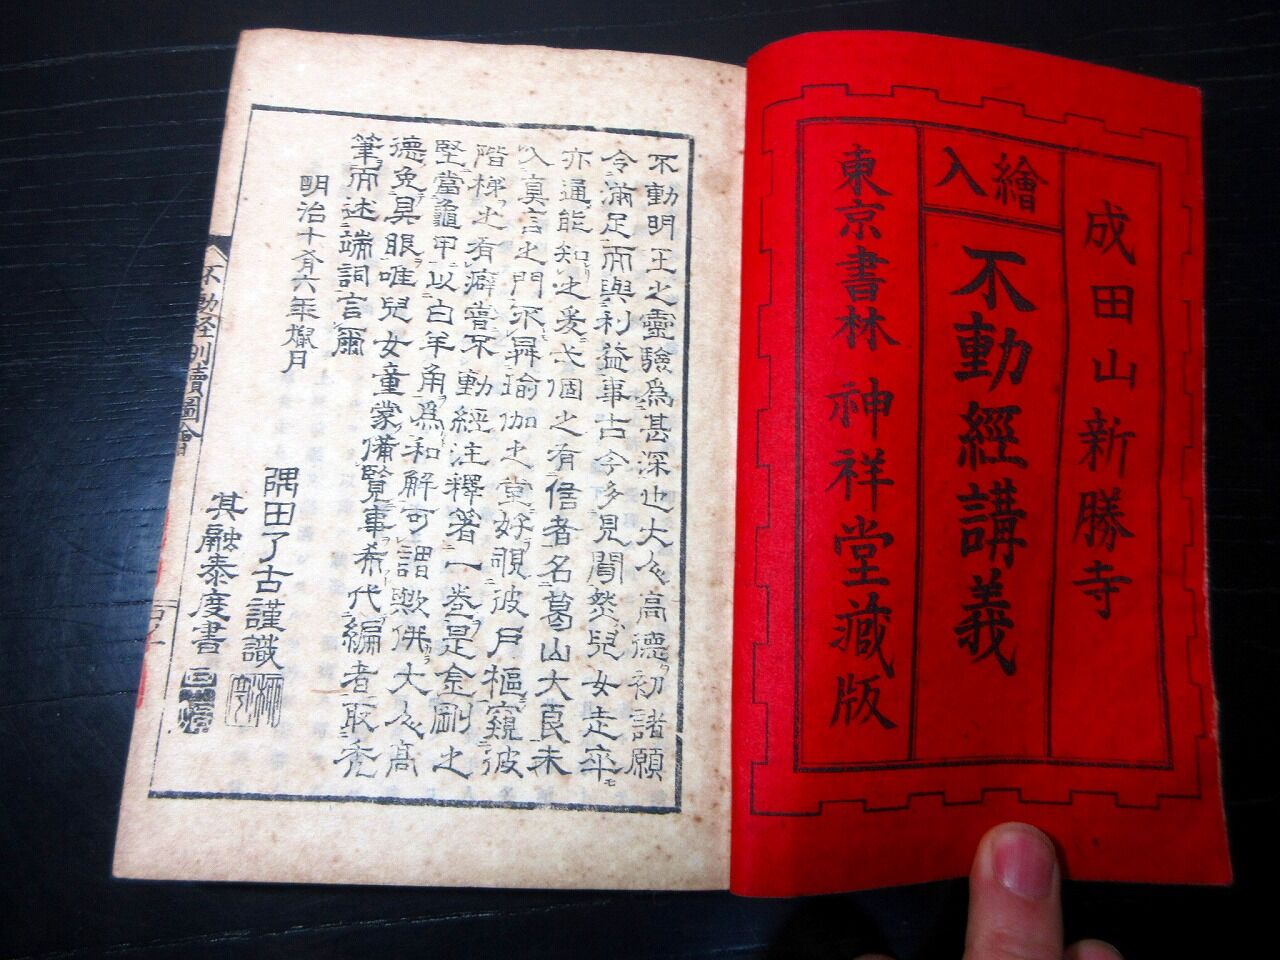 成田山新勝寺
繪入
不動經講義
東京書林 神祥堂藏版
不動明王之靈驗為甚深也大人高德初諸願
令滿足而與利益事古今多見聞然兒女走卒モ
亦通能知之爰大個之有信者名葛山大良未
入真言之門不昇瑜伽之堂好覗彼戶樞窺彼
階梯之有癖嘗不動經注釋著一卷是金剛之
堅當龜甲以白羊角為和解可謂歟佛大人高
德免具眼唯兒女童蒙備覽事希代編者取禿
筆而述端詞言爾
明治十有六年 月
隅田了古謹識
其融泰度書
不動經 圖會